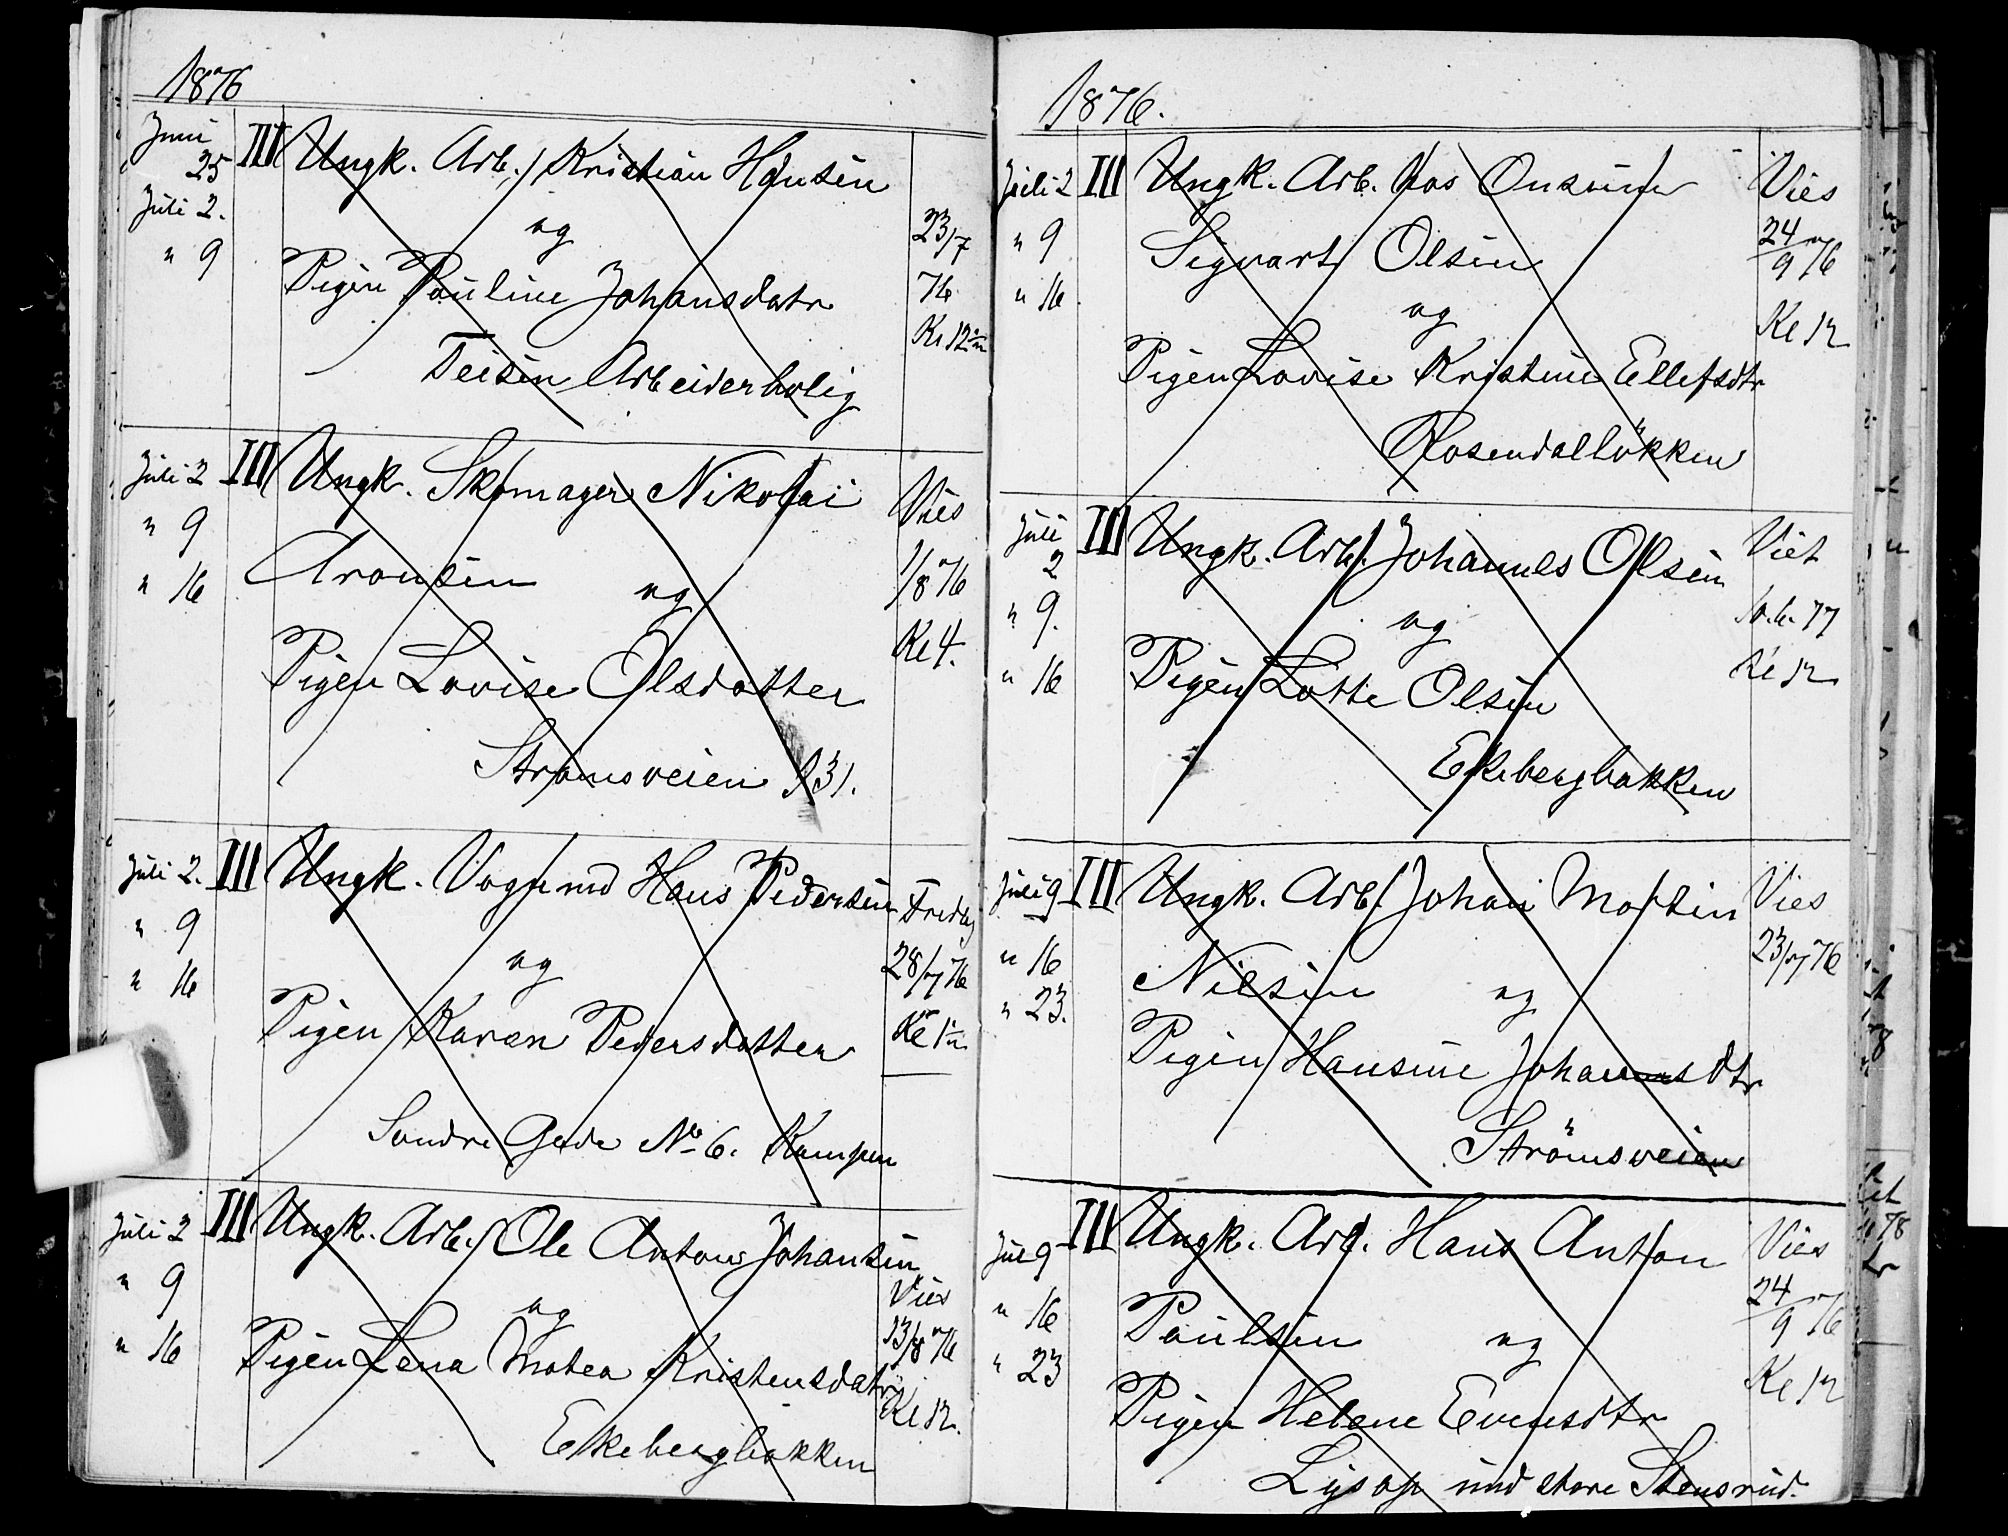 1876
Juni 25 III Ungk. Arb. Kristian Hansen
Juli 2. og 23/7
" 9 Pigen Pauline Johansdatr 76
Kr 12
Teisen Arbeiderbolig
Juli 2 III Ungk. Skomager Nikolai Vies
" 9 Aronsen og 1/8 76
" 16 Pigen Lovise Olsdatter Kl 4.
Strømsveien 131.
Juli 2. III Ungk. Vognmd Hans Pedersen Fredag
" 9 og 28/7 76
" 16 Pigen Karen Pedersdatter Kl
Søndre Gade No 6. Kampen
Juli 2 III Ungk. Arb. Ole Anton Johansen
" 9 og Vies 13/8 76
" 16 Pigen Lena Matea Kristensdatr
Kl 12.
Ekebergbakken
1876.
Juli 2 III Ungk. Arb. hos Onsum Vies
" 9 Sigvart Olsen 24/9 76
" 16 og Kl 12
Pigen Lovise Kristine Ellefsdtr
Rosendalløkken
Juli 2 III Ungk. Arb. Johannes Olsen Viet
" 9. og 77
" 16 Pigen Lotte Olsen Kl 12
Ekebergbakken
Juli 9 III Ungk. Arb. Johan Martin Vies
" 16 Nilsen og 23/7 76
" 23. Pigen Hansine Johannesdtr
Strömsveien
Jul 9 III Ungk. Arb. Hans Anton Vies
" 16 Paulsen og 24/9 76
" 23 Pigen Helene Evensdtr Kl 12
Lysop und store Stensrud.